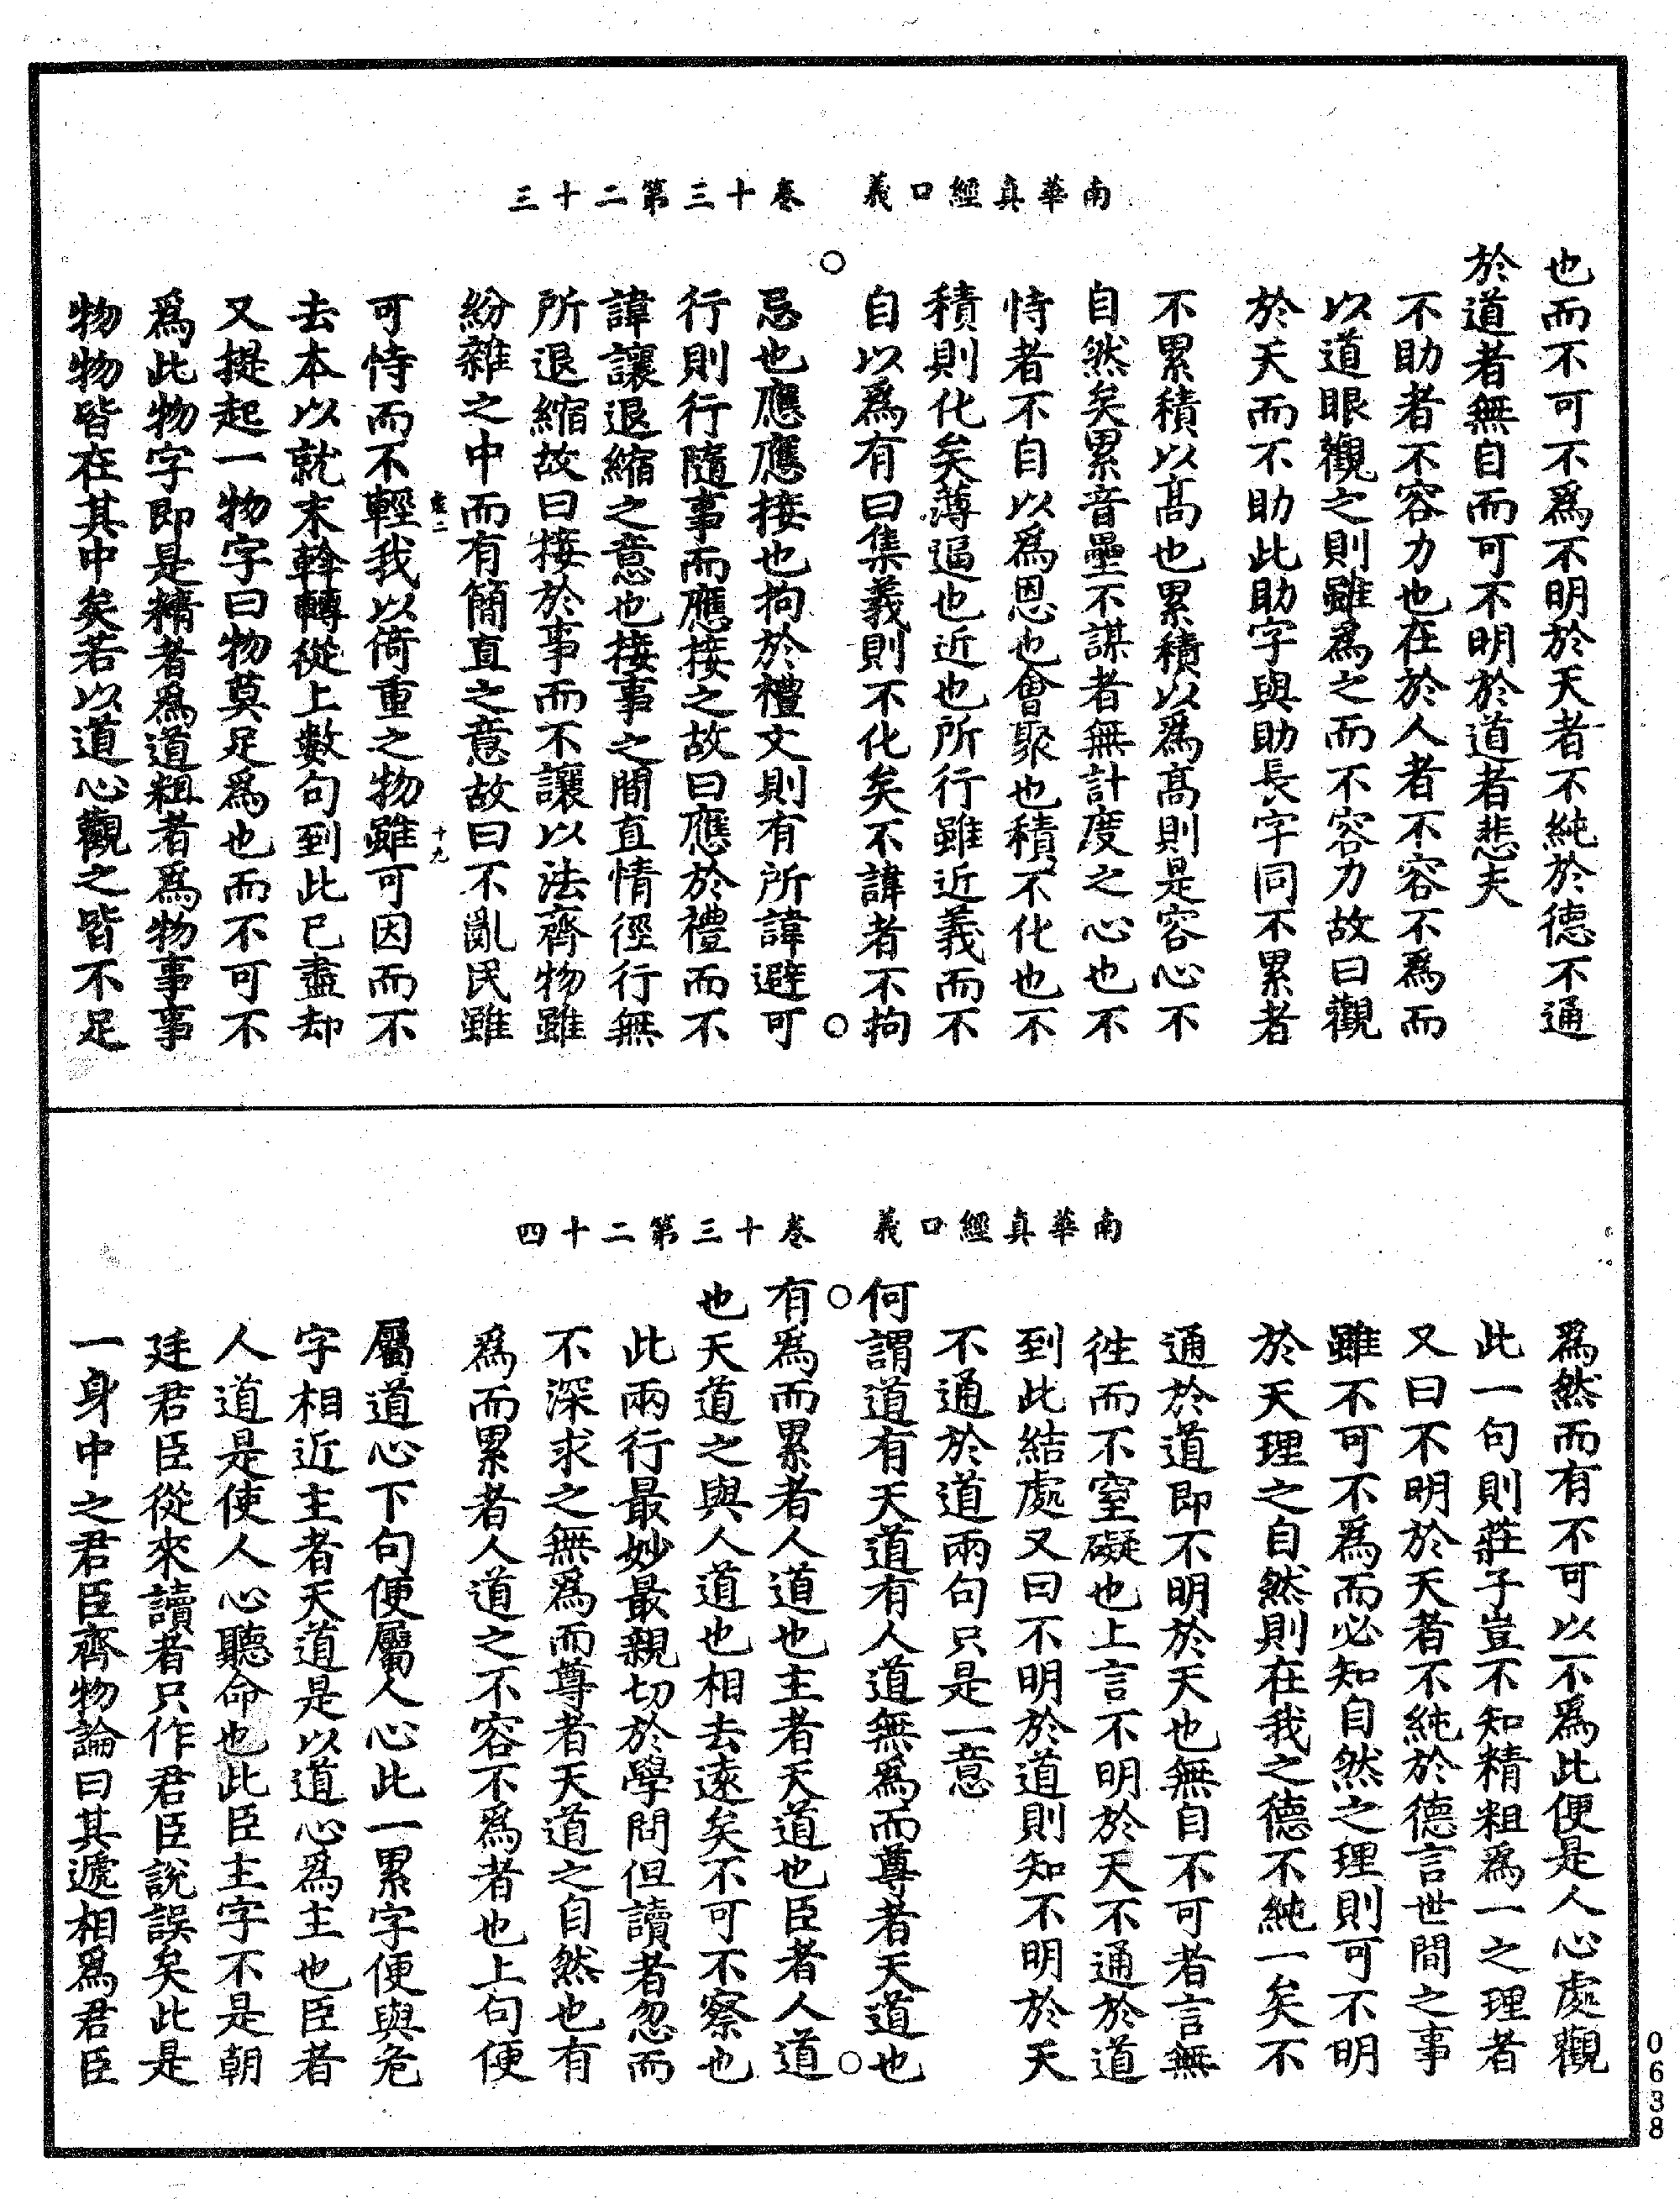 南華真經口義　卷十三第二十三
也而不可不爲不明於天者不純於德不通
於道者無自而可不明於道者悲夫
不助者不容力也在於人者不容不爲而
以道眼觀之則雖爲之而不容力故曰觀
於天而不助此助字與助長字同不累者
不累積以高也累積以爲高則是容心不
自然矣累音壘不謀者無計度之心也不
恃者不自以爲恩也會聚也積不化也不
積則化矣薄逼也近也所行雖近義而不
自以爲有曰集義則不化矣不諱者不拘
忌也應應接也拘於禮文則有所諱避可
行則行隨事而應接之故曰應於禮而不
諱讓退縮之意也接事之間直情徑行無
所退縮故曰接於事而不讓以法齊物雖
紛雜之中而有簡直之意故曰不亂民雖
十九
可恃而不輕我以倚重之物雖可因而不
去本以就末斡轉從上數句到此已盡却
又提起一物字曰物莫足爲也而不可不
爲此物字即是精者爲道粗者爲物事事
物物皆在其中矣若以道心觀之皆不足
南華真經口義　卷十三第二十四
爲然而有不可以不爲此便是人心處觀
此一句則莊子豈不知精粗爲一之理者
又曰不明於天者不純於德言世間之事
雖不可不爲而必知自然之理則可不明
於天理之自然則在我之德不純一矣不
通於道即不明於天也無自不可者言無
徃而不窒礙也上言不明於天不通於道
到此結處又曰不明於道則知不明於天
不通於道兩句只是一意
何謂道有天道有人道無爲而尊者天道也
有爲而累者人道也主者天道也臣者人道
也天道之與人道也相去遠矣不可不察也
此兩行最妙最親切於學問但讀者忽而
不深求之無爲而尊者天道之自然也有
爲而累者人道之不容不爲者也上句便
屬道心下句便屬人心此一累字便與危
字相近主者天道是以道心爲主也臣者
人道是使人心聽命也此臣主字不是朝
廷君臣從來讀者只作君臣說誤矣此是
一身中之君臣齊物論曰其遞相爲君臣
0638